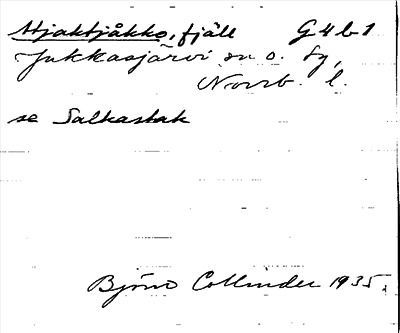 Stjaktjåkko, fjäll G4b1
Jukkasjärvi sn o. by,
Norrb. l.
se Salkastak
Björn Collinder 1935.